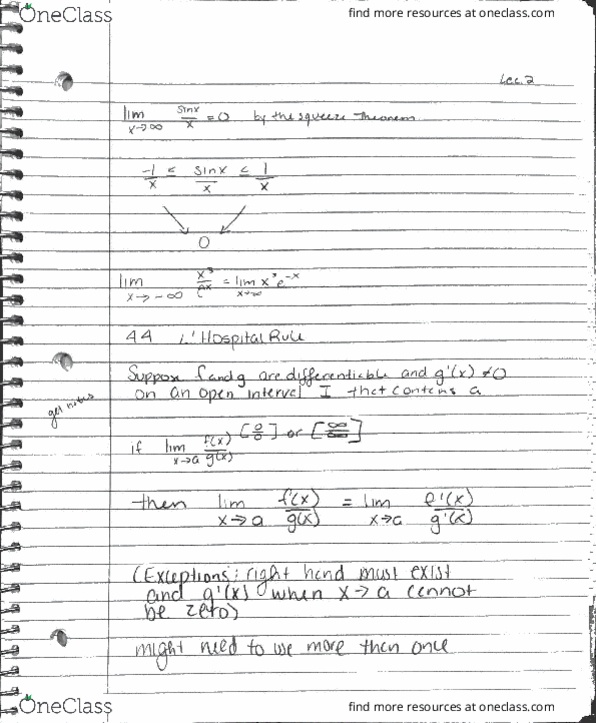 OneClass
find more resources at oneclass.com
Lec. 2
lim x→∞ sinx/x = 0 by the squeeze theorem
-1/x ≤ sinx/x ≤ 1/x
0
lim x→-∞ x³/eˣ = lim x→-∞ x³e⁻ˣ
4.4 L'Hospital Rule
Suppose f and g are differentiable and g'(x) ≠ 0
on an open interval I that contains a
get notes
if lim x→a f(x)/g(x) [0/0] or [∞/∞]
then lim x→a f(x)/g(x) = lim x→a f'(x)/g'(x)
(Exceptions: right hand must exist
and g'(x) when x→a cannot
be zero)
might need to use more than once
OneClass
find more resources at oneclass.com